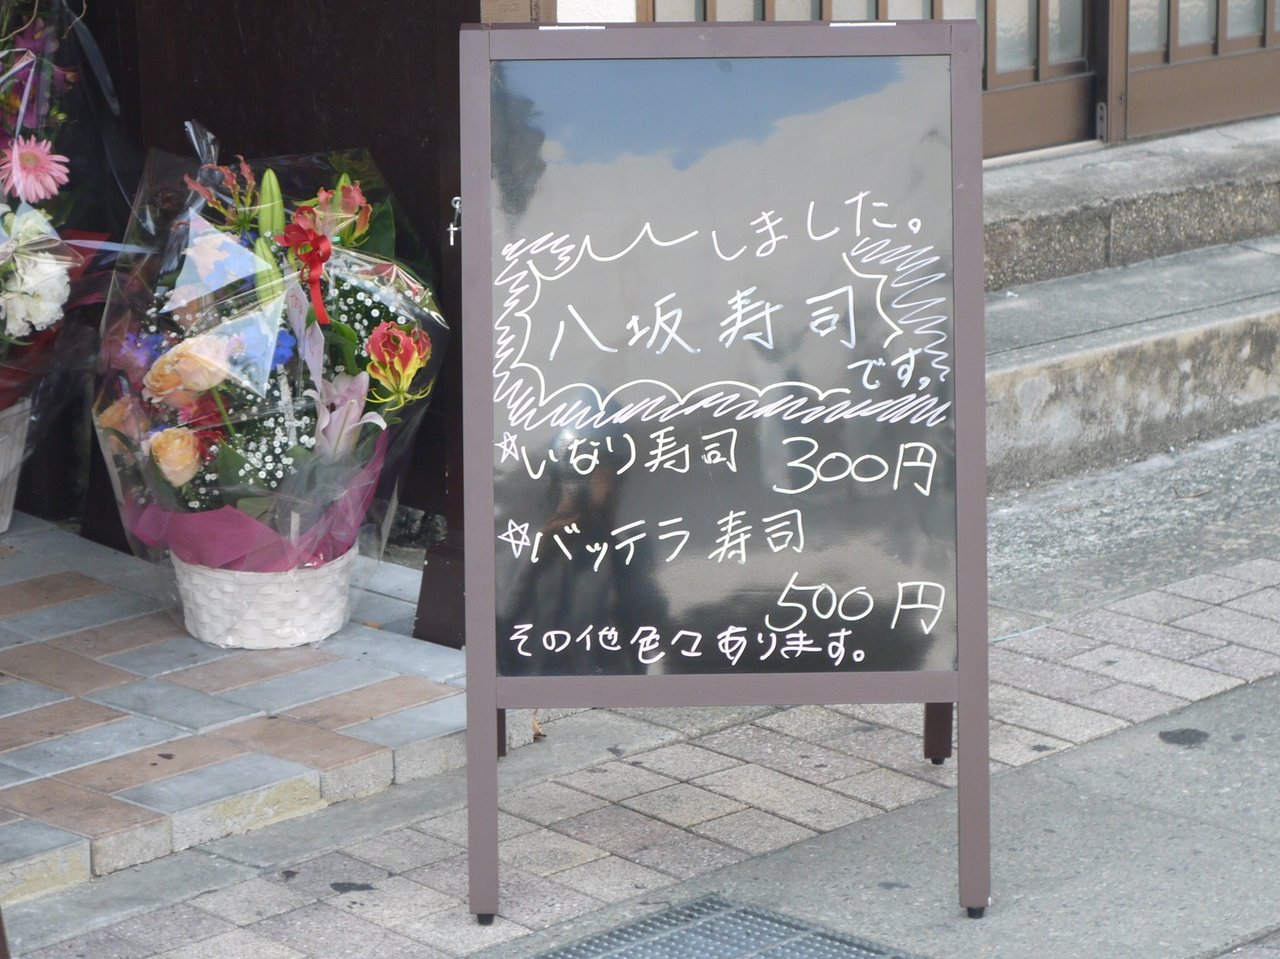 しました。
八坂寿司
です。
☆いなり寿司 300円
☆バッテラ寿司
500円
その他色々あります。